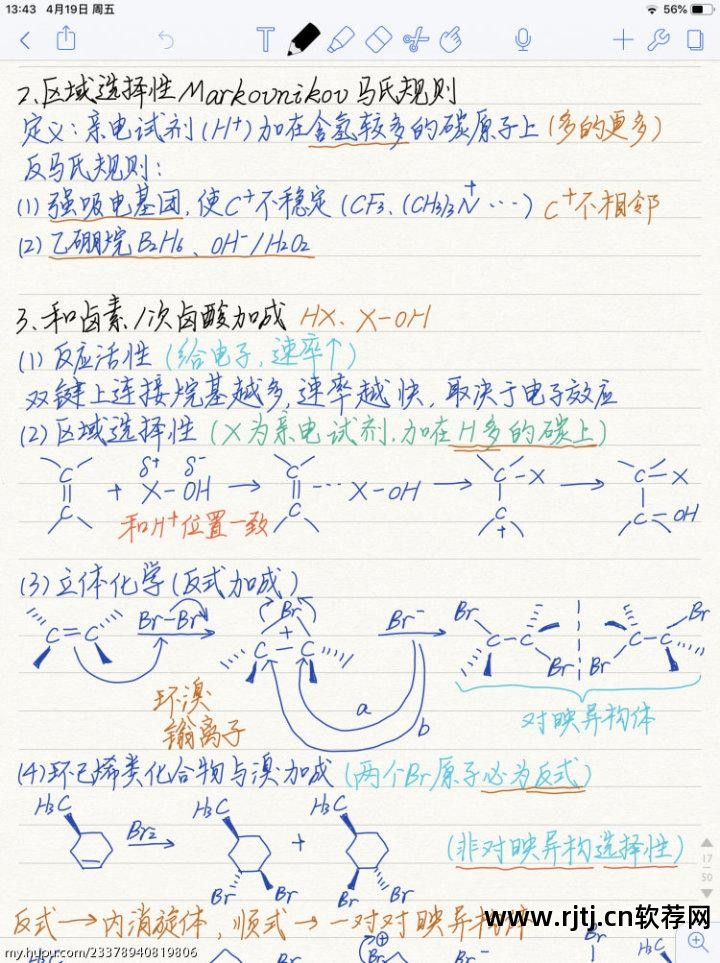 13:43 4月19日 周五 56%
2.区域选择性 Markovnikov 马氏规则
定义:亲电试剂(H+)加在含氢较多的碳原子上(多的更多)
反马氏规则:
(1) 强吸电基团,使C+不稳定(CF3、(CH3)3N+ ···) C+不相邻
(2) 乙硼烷 B2H6、OH-/H2O2
3.和卤素/次卤酸加成 HX、X-OH
(1) 反应活性(给电子,速率↑)
双键上连接烷基越多,速率越快,取决于电子效应
(2) 区域选择性(X为亲电试剂,加在H多的碳上)
C C + δ+ δ- X-OH → C C ··· X-OH → C-X C + → C X C OH
和H+位置一致
(3) 立体化学(反式加成)
C=C Br-Br Br + C-C Br- Br C-C Br Br C-C Br
a
b
环溴
鎓离子
对映异构体
(4) 环己烯类化合物与溴加成(两个Br原子必为反式)
H3C Br2 H3C Br Br + H3C Br Br
(非对映异构选择性)
17
50
反式→内消旋体,顺式→一对对映异构体
www.rjtj.cn软荐网
my.hupu.com/23378940819806
Br Br- Br H3C